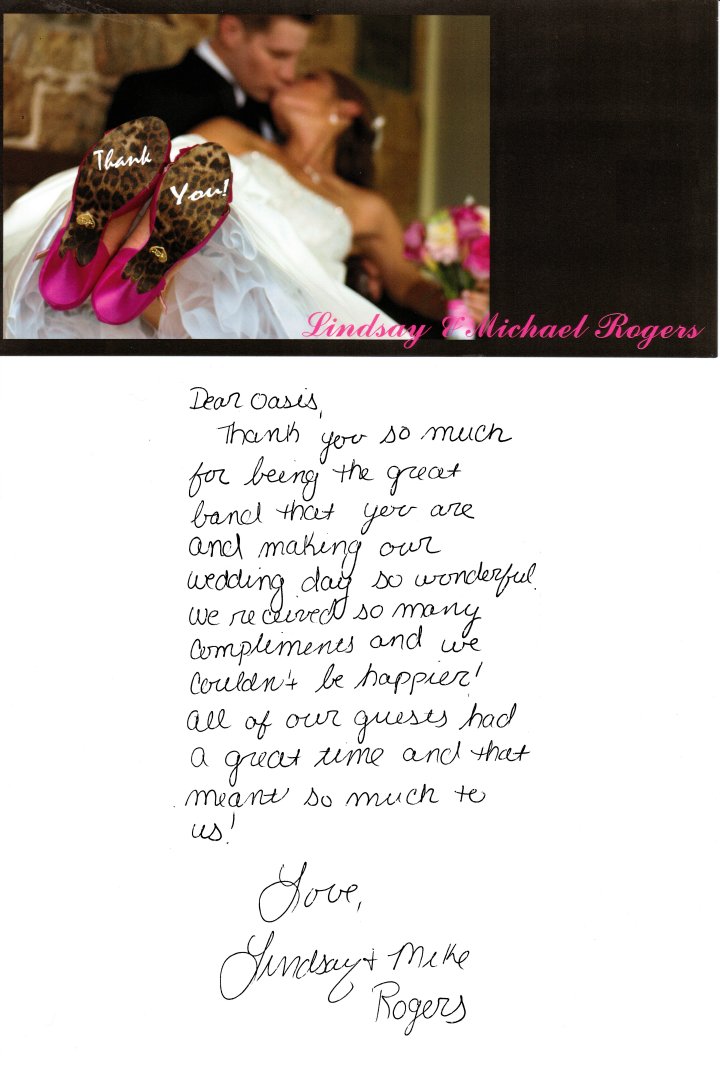 Thank
You!
Lindsay & Michael Rogers
Dear Oasis,
Thank you so much
for being the great
band that you are
and making our
wedding day so wonderful.
We received so many
compliments and we
couldn't be happier!
All of our guests had
a great time and that
meant so much to
us!
Love,
Lindsay + Mike
Rogers